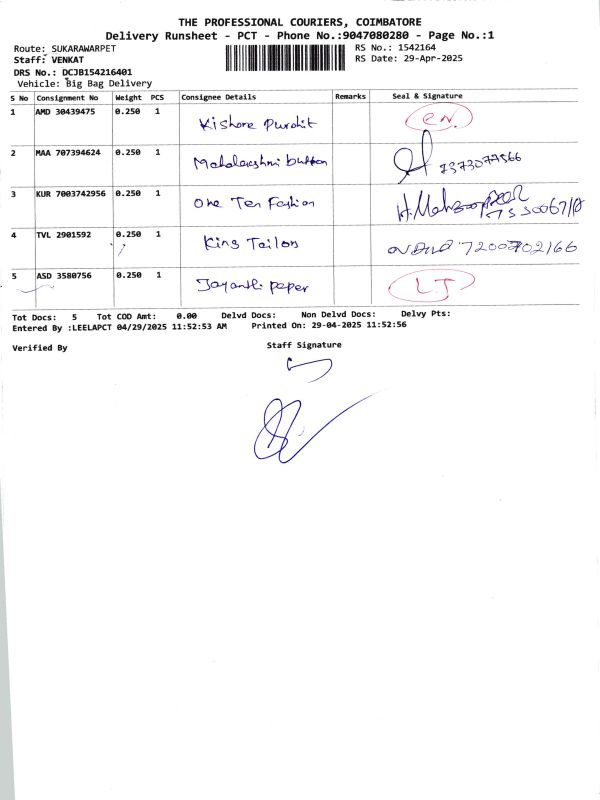 THE PROFESSIONAL COURIERS, COIMBATORE
Delivery Runsheet - PCT - Phone No.:9047080280 - Page No.:1
Route: SUKARAWARPET
RS No.: 1542164
Staff: VENKAT
RS Date: 29-Apr-2025
DRS No.: DCJB154216401
Vehicle: Big Bag Delivery
S No Consignment No Weight PCS Consignee Details Remarks Seal & Signature
1 AMD 30439475 0.250 1 Kishore Purohit
2 MAA 707394624 0.250 1 Mahalakshmi button 7373077566
3 KUR 7003742956 0.250 1 One Ten Fashion
4 TVL 2901592 0.250 1 King Tailors
5 ASD 3580756 0.250 1 Jayanthi paper LJ
Tot Docs: 5 Tot COD Amt: 0.00 Delvd Docs: Non Delvd Docs: Delvy Pts:
Entered By :LEELAPCT 04/29/2025 11:52:53 AM Printed On: 29-04-2025 11:52:56
Verified By
Staff Signature